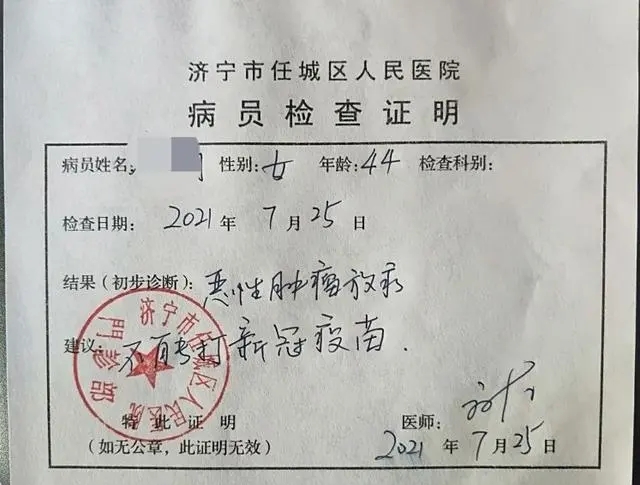 济宁市任城区人民医院
病员检查证明
病员姓名: 性别:女 年龄:44 检查科别:
检查日期: 2021 年 7 月 25 日
结果(初步诊断):恶性肿瘤放疗
建议:不 打新冠疫苗.
济宁市任城区人民医院
门诊部
特此证明 医师:
(如无公章,此证明无效) 2021 年 7 月 25 日